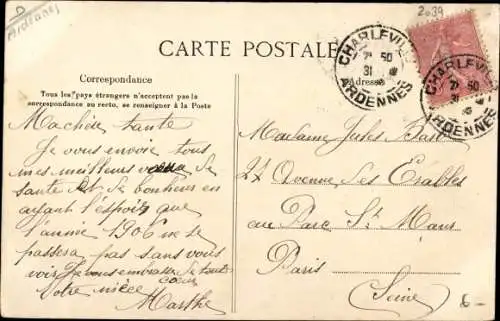 2039
D
Ardennes
CARTE POSTALE
Correspondance
Tous les pays étrangers n'acceptent pas la
correspondance au recto, se renseigner à la Poste
Adresse
CHARLEVILLE
7 50
31
ARDENNES
CHARLEVILLE
7 50
31
ARDENNES
Ma chère tante
Je vous envoie tous
mes meilleurs vœux de
santé et de bonheur en
ayant l'espoir que
l'année 1906 ne se
passera pas sans vous
voir Je vous embrasse de tout
cœur
Votre nièce
Marthe
Madame Jules
27 Avenue des Érables
au Parc St Maur
Paris
Seine
6-